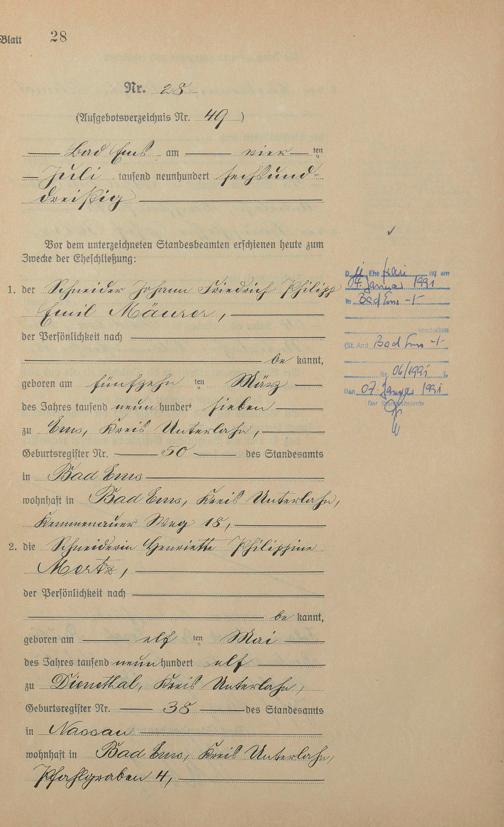 Blatt 28
Nr. 28
(Aufgebotsverzeichnis Nr. 49)
Bad Ems am vier ten
Juli tausend neunhundert sechsund-
dreißig
Vor dem unterzeichneten Standesbeamten erschienen heute zum
Zwecke der Eheschließung:
1. der Schneider Johann Friedrich Philipp
Emil Mäurer,
der Persönlichkeit nach
be kannt,
geboren am fünfzehn ten März
des Jahres tausend neunhundert sieben
zu Ems, Kreis Unterlahn,
Geburtsregister Nr. 50 des Standesamts
in Bad Ems
wohnhaft in Bad Ems, Kreis Unterlahn,
Kemmenauer Weg 18,
2. die Schneiderin Henriette Philippine
der Persönlichkeit nach
be kannt,
geboren am elf ten Mai
des Jahres tausend neunhundert elf
zu Dienethal, Kreis Unterlahn,
Geburtsregister Nr. 38 des Standesamts
in Nassau
wohnhaft in Bad Ems, Kreis Unterlahn,
Pfahlgraben 4,
D ist am
04. Januar 1991
in Bad Ems -/-
verstorben
(St. Amt Bad Ems -/-
Nr. 06/1991
Den 07. Januar 1991
Der Standesbeamte